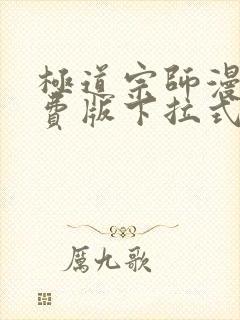 極道宗師漫
費版下拉式
厲九歌